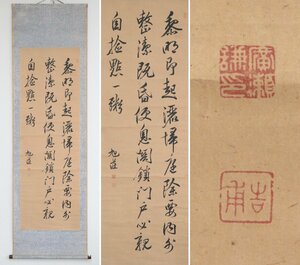 黎明即起灑掃庭除要内外
整潔既昏便息關鎖門戶必親
自撿點一粥
旭莊
黎明即起灑掃庭除要内外
整潔既昏便息關鎖門戶必親
自撿點一粥
旭莊
廣瀬
謙印
吉甫